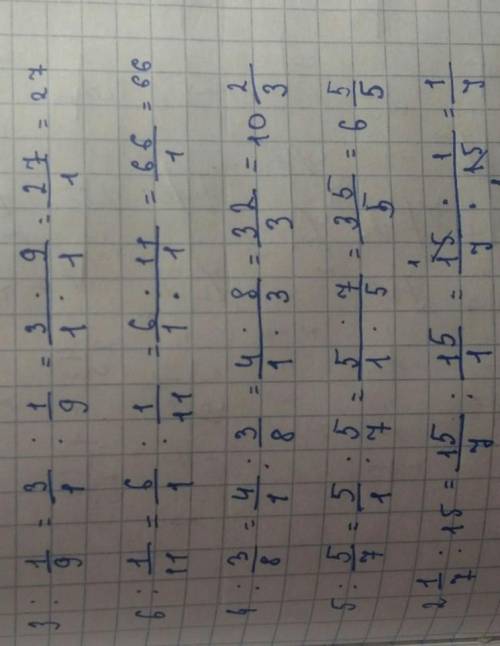 3 : 1/9 = 3/1 : 1/9 = (3 · 9)/(1 · 1) = 27/1 = 27
6 : 1/11 = 6/1 : 1/11 = (6 · 11)/(1 · 1) = 66/1 = 66
4 : 3/8 = 4/1 : 3/8 = (4 · 8)/(1 · 3) = 32/3 = 10 2/3
5 : 5/7 = 5/1 : 5/7 = (5 · 7)/(1 · 5) = 35/5 = 6 5/5
2 1/7 : 15 = 15/7 : 15/1 = (15 · 1)/(7 · 15) = 1/7